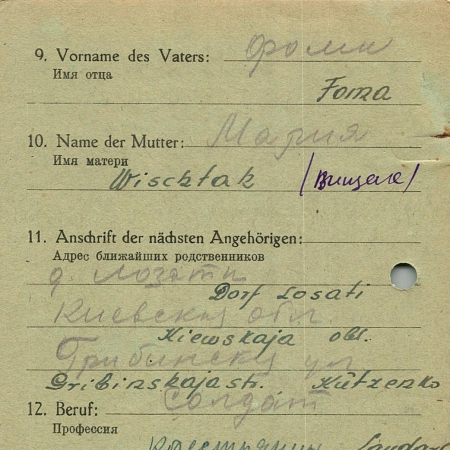 9. Vorname des Vaters: Фоми
Имя отца
Foma
10. Name der Mutter: Мария
Имя матери
Wischtak
11. Anschrift der nächsten Angehörigen:
Адрес ближайших родственников
д. Лозяти
Dorf Losati
Киевския обл.
Kiewskaja obl.
Грибинския ул
Gribinskajastr. Kützenko
12. Beruf: Солдат
Профессия